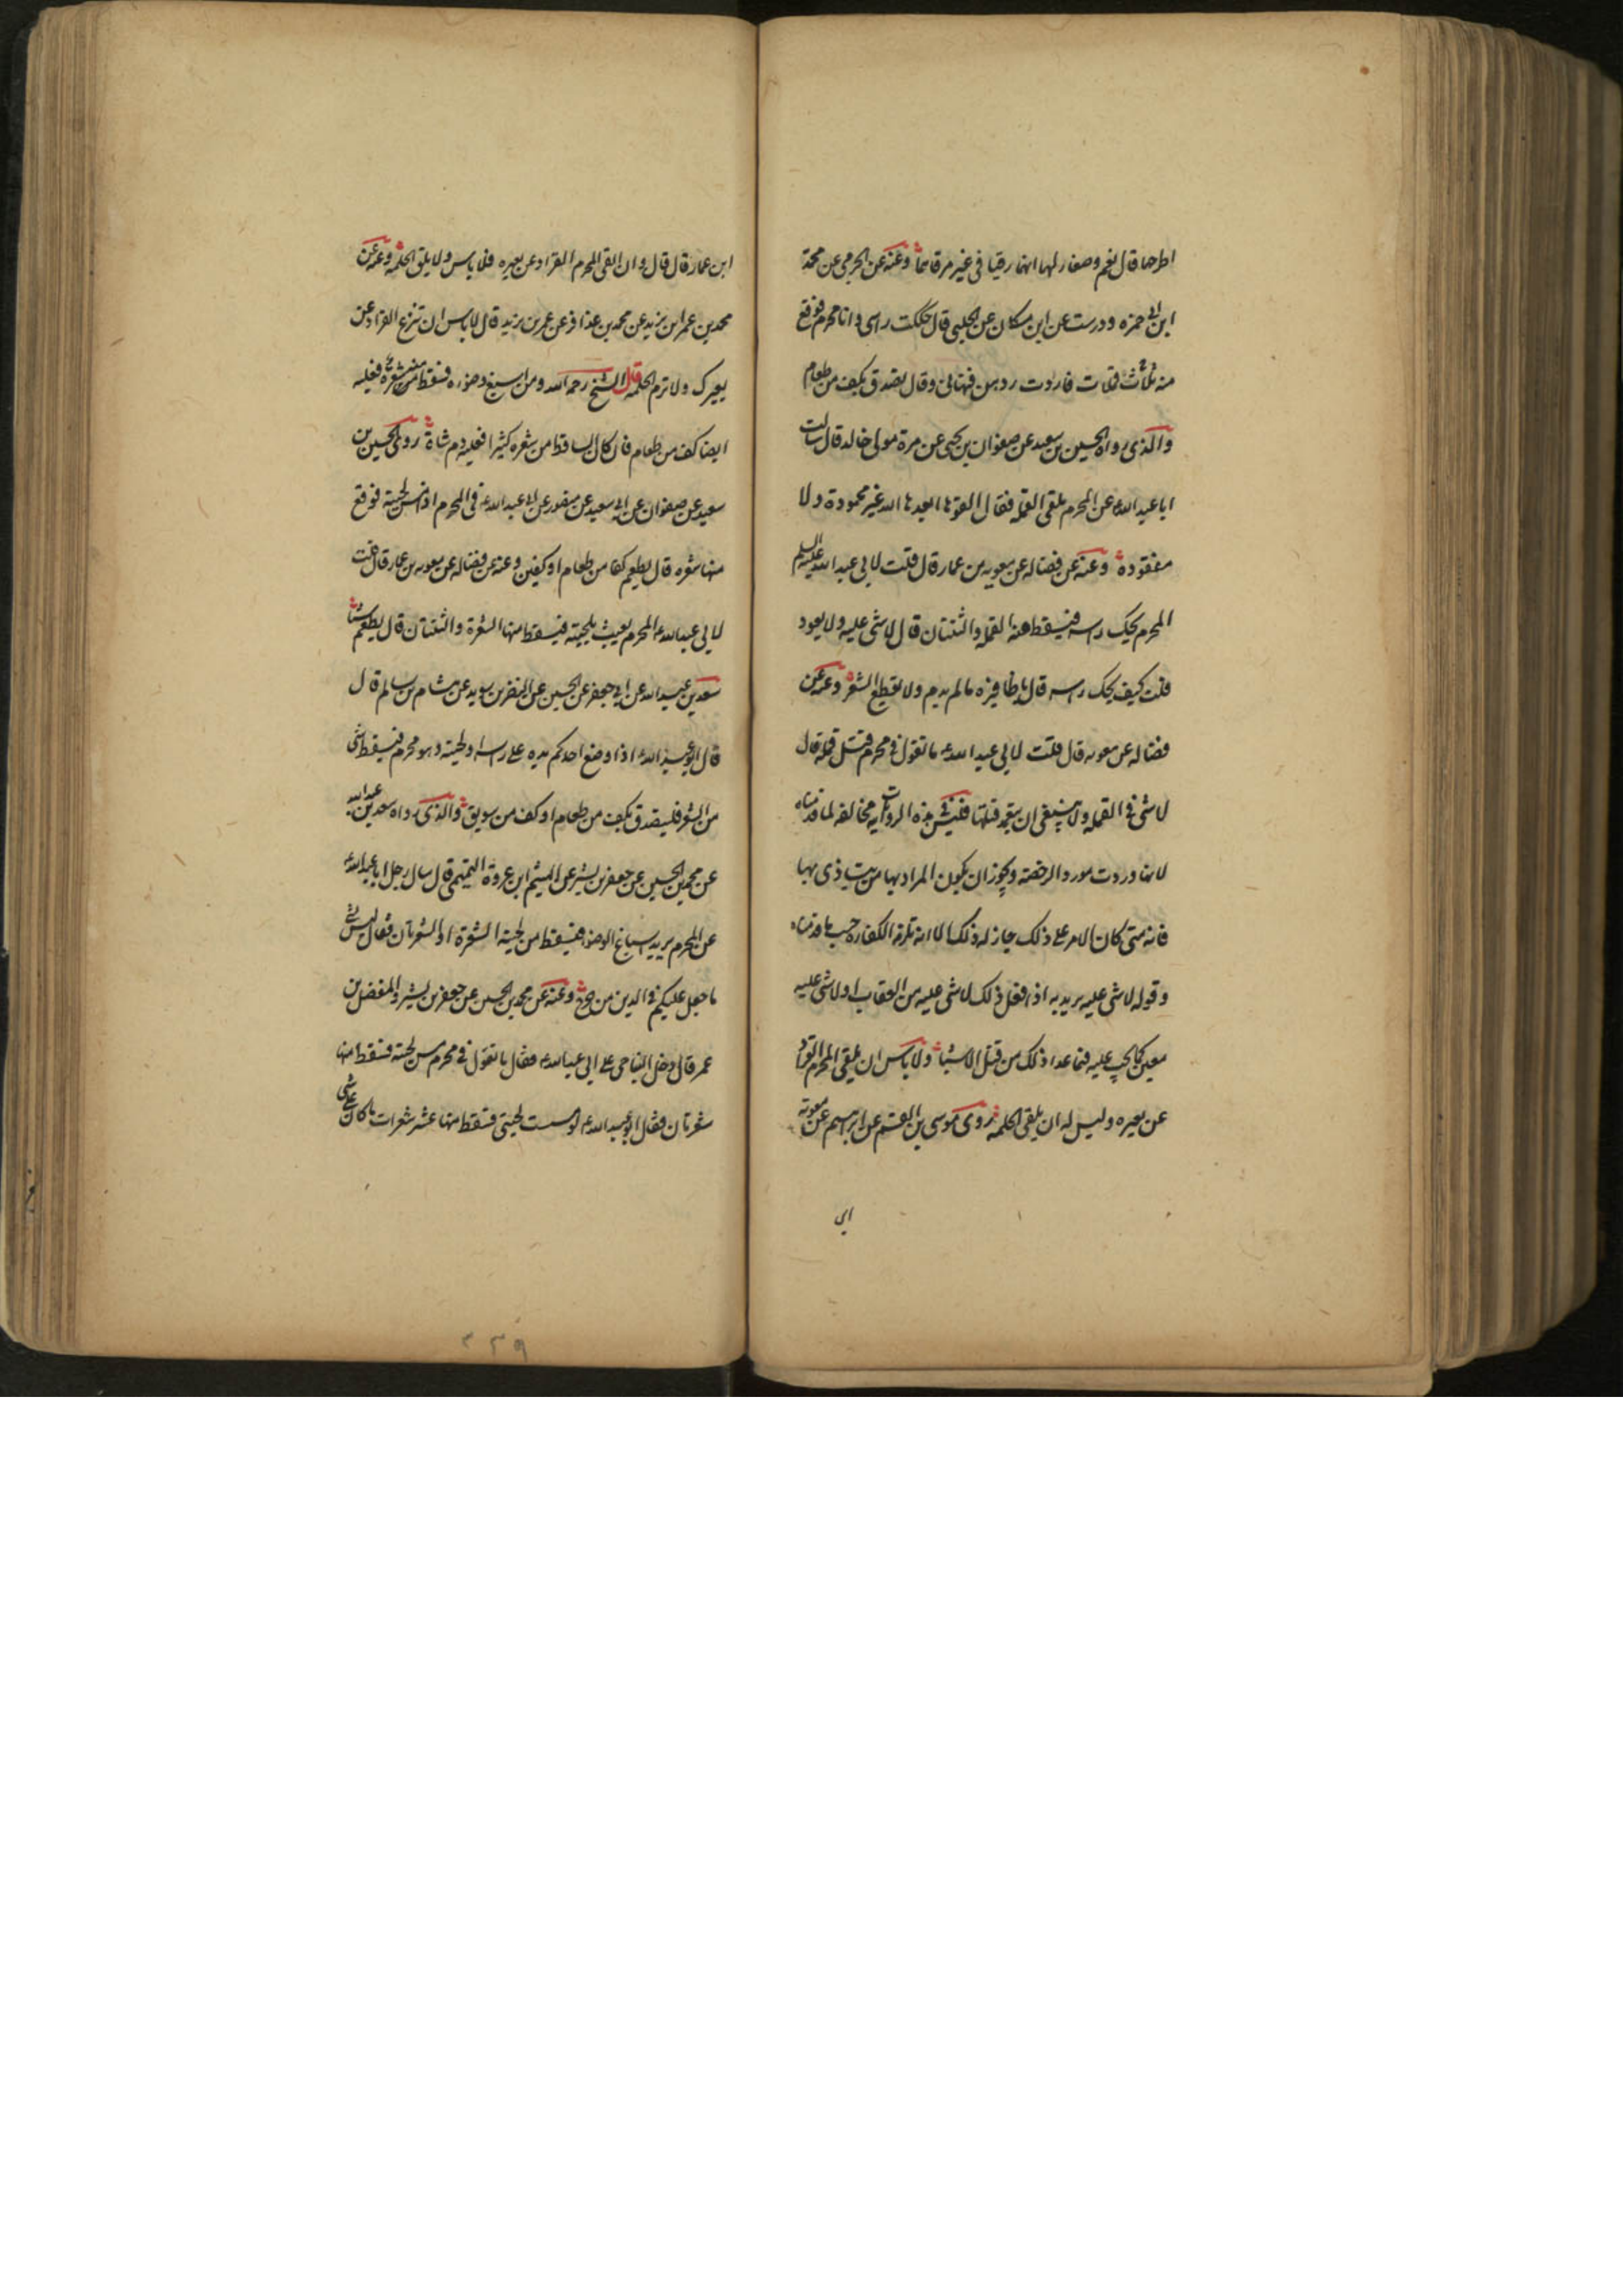 اطرحها قال نعم وصغار لهما انهما رقيا في غير مرقاهما وعنه عن الجرمي عن محمد
ابن ابي حمزه ودرست عن ابن مسكان عن الحلبي قال حككت راسي وانا محرم فوقع
منه ثلث قملات فاردت ردهن فنهاني وقال تصدق بكف من طعام
والذي رواه الحسين بن سعيد عن صفوان بن يحيى عن مرة مولى خالد قال سالت
ابا عبد الله عن المحرم يلقى القملة فقال القوها ابعدها الله غير محمودة ولا
مفقودة وعنه عن فضاله عن معويه بن عمار قال قلت لابي عبد الله عليه السلم
المحرم يحك راسه فيسقط عنه القملة والثنتان قال لا شي عليه ولا يعود
قلت كيف يحك راسه قال باظافيره ما لم يدم ولا يقطع الشعر وعنه عن
فضاله عن معويه قال قلت لابي عبد الله ما تقول في محرم قتل قملة قال
لا شي في القملة ولا ينبغي ان يتعمد قتلها فليس هذه الروايات مخالفه لما قدمناه
لانها وردت مورد الرخصة ويجوز ان يكون المراد بها من يتاذى بها
فانه متى كان الامر على ذلك جاز له ذلك الا انه تلزمه الكفاره حسب ما قدمناه
وقوله لا شي عليه يريد به اذا فعل ذلك لا شي عليه من العقاب او لا شي عليه
معين كما يجب عليه فيما عدا ذلك من قتل الاشياء ولا باس ان يلقى المحرم القراد
عن بعيره وليس له ان يلقى الحلمة روى موسى بن القسم عن ابراهيم عن معويه
ابن
ابن عمار قال قال وان القى المحرم القراد عن بعيره فلا باس ولا يلق الحلمة وعنه عن
محمد بن عمر بن يزيد عن محمد بن عذافر عن عمر بن يزيد قال لا باس ان تنزع القراد عن
بعيرك ولا ترم الحلمة قال الشيخ رحمه الله ومن اسبغ وضوءه فسقط من شعره شي فعليه
ايضا كف من طعام فان كان الساقط من شعره كثيرا فعليه دم شاة روى الحسين بن
سعيد عن صفوان عن ابي سعيد عن منصور عن ابي عبد الله في المحرم اذا مس لحيته فوقع
منها شعره قال يطعم كفا من طعام او كفين وعنه عن فضاله عن معويه بن عمار قال قلت
لابي عبد الله المحرم يعبث بلحيته فيسقط منها الشعرة والثنتان قال يطعم شيئا
سعد بن عبد الله عن ابي جعفر عن الحسين عن النضر بن سويد عن هشام بن سالم قال
قال ابو عبد الله اذا وضع احدكم يده على راسه او لحيته وهو محرم فيسقط شي
من الشعر فليتصدق بكف من طعام او كف من سويق والذي رواه سعد بن عبد الله
عن محمد بن الحسين عن جعفر بن بشير عن الهيثم ابن عروة التميمي قال سال رجل ابا عبد الله
عن المحرم يريد اسباغ الوضوء فيسقط من لحيته الشعرة او الشعرتان فقال ليس بشي
ما جعل عليكم في الدين من حرج وعنه عن محمد بن الحسين عن جعفر بن بشير والمفضل بن
عمر قال دخل النباحي على ابي عبد الله فقال ما تقول في محرم مس لحيته فسقط منها
شعرتان فقال ابو عبد الله لو مسست لحيتي فسقط منها عشر شعرات ما كان علي شي
٢٣٩